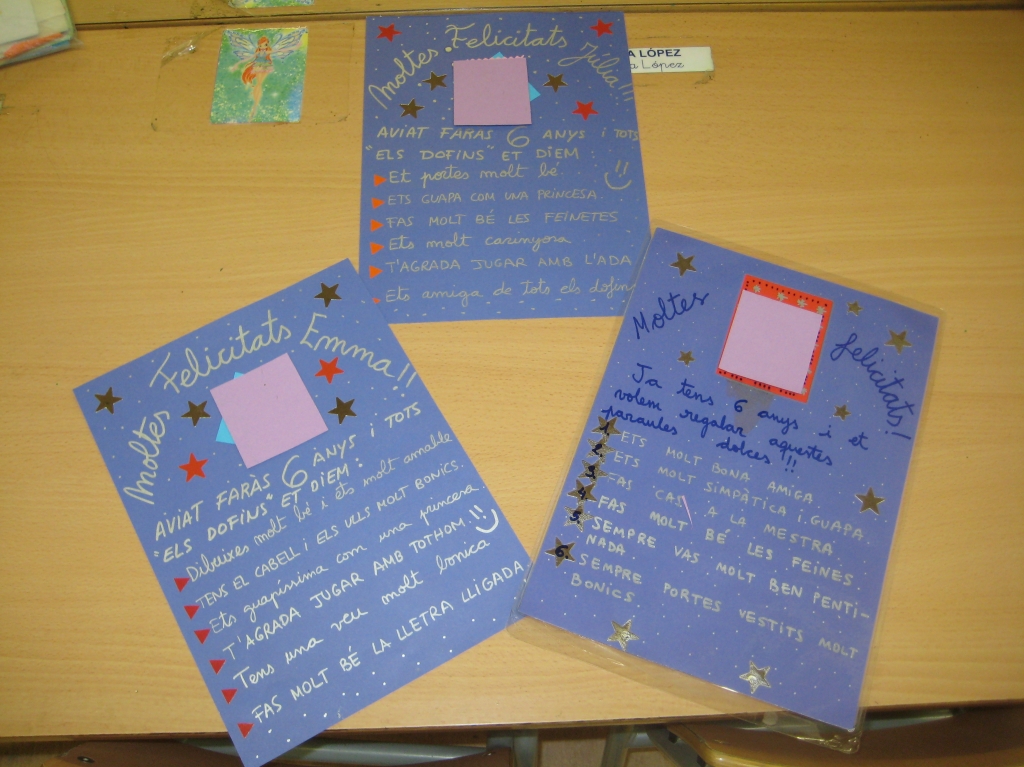 Moltes Felicitats Júlia!!!
AVIAT FARAS 6 ANYS i TOTS
"ELS DOFINS" ET DIEM :
Et portes molt bé
ETS GUAPA COM UNA PRINCESA.
FAS MOLT BÉ LES FEINETES
Ets molt carinyosa
T'AGRADA JUGAR AMB L'ADA
Ets amiga de tots els dofins
A LÓPEZ
a López
Moltes Felicitats Emma!!
AVIAT FARÀS 6 ANYS i TOTS
"ELS DOFINS" ET DIEM :
Dibuixes molt bé i ets molt amable
TENS EL CABELL i ELS ULLS MOLT BONICS.
Ets guapíssima com una princesa
T'AGRADA JUGAR AMB TOTHOM.
Tens una veu molt bonica
FAS MOLT BÉ LA LLETRA LLIGADA
Moltes felicitats!
Ja tens 6 anys i et
volem regalar aquestes
paraules dolces !!!
1 ETS MOLT BONA AMIGA
2 ETS MOLT SIMPÀTICA i GUAPA.
3 FAS CAS A LA MESTRA
4 FAS MOLT BÉ LES FEINES
5 SEMPRE VAS MOLT BEN PENTI-
NADA
6 SEMPRE PORTES VESTITS MOLT
BONICS